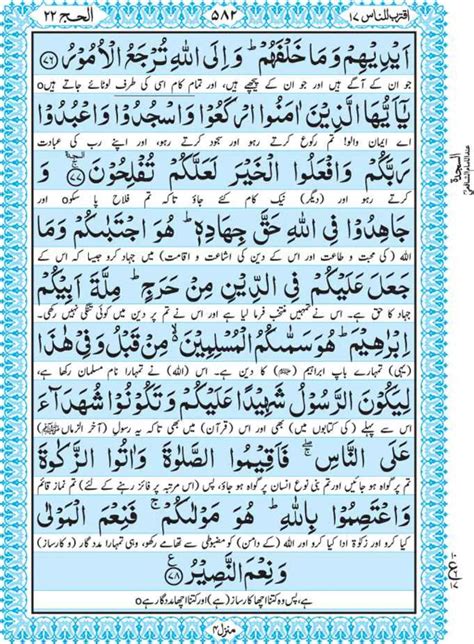 اقترب للناس ۱۷ ۵۸۲ الحج ۲۲
اَيْدِيْهِمْ وَمَا خَلْفَهُمْ ؕ وَاِلَى اللّٰهِ تُرْجَعُ الْاُمُوْرُ ﴿۷۶﴾
جو ان کے آگے ہیں اور جو ان کے پیچھے ہیں، اور تمام کام اسی کی طرف لوٹائے جاتے ہیںo
يٰۤاَيُّهَا الَّذِيْنَ اٰمَنُوا ارْكَعُوْا وَاسْجُدُوْا وَاعْبُدُوْا
اے ایمان والو! تم رکوع کرتے رہو اور سجود کرتے رہو، اور اپنے رب کی عبادت
رَبَّكُمْ وَافْعَلُوا الْخَيْرَ لَعَلَّكُمْ تُفْلِحُوْنَ ﴿۷۷﴾
کرتے رہو اور (دیگر) نیک کام کئے جاؤ تاکہ تم فلاح پا سکوo
السجدة
جَاهِدُوْا فِى اللّٰهِ حَقَّ جِهَادِهٖ ؕ هُوَ اجْتَبٰٮكُمْ وَمَا
اللہ (کی محبت و طاعت اور اس کے دین کی اشاعت و اقامت) میں جہاد کرو جیسا کہ اس کے
جَعَلَ عَلَيْكُمْ فِى الدِّيْنِ مِنْ حَرَجٍ ؕ مِلَّةَ اَبِيْكُمْ
جہاد کا حق ہے۔ اس نے تمہیں منتخب فرما لیا ہے اور اس نے تم پر دین میں کوئی تنگی نہیں رکھی۔
اِبْرٰهِيْمَ ؕ هُوَ سَمّٰٮكُمُ الْمُسْلِمِيْنَ ۙ مِنْ قَبْلُ وَفِىْ هٰذَا
(یہی) تمہارے باپ ابراہیم (ع) کا دین ہے۔ اس (اللہ) نے تمہارا نام مسلمان رکھا ہے،
لِيَكُوْنَ الرَّسُوْلُ شَهِيْدًا عَلَيْكُمْ وَتَكُوْنُوْا شُهَدَآءَ
اس سے پہلے (کی کتابوں میں) بھی اور اس (قرآن) میں بھی تاکہ یہ رسول (آخر الزماں)
عَلَى النَّاسِ ۚ فَاَقِيْمُوا الصَّلٰوةَ وَاٰتُوا الزَّكٰوةَ
تم پر گواہ ہو جائیں اور تم بنی نوع انسان پر گواہ ہو جاؤ، پس (اس مرتبہ پر فائز رہنے کے لئے) تم نماز قائم
وَاعْتَصِمُوْا بِاللّٰهِ ؕ هُوَ مَوْلٰٮكُمْ ۚ فَنِعْمَ الْمَوْلٰى
کیا کرو اور زکوٰۃ ادا کیا کرو اور اللہ (کے دامن) کو مضبوطی سے تھامے رکھو، وہی تمہارا مددگار (و کارساز)
وَنِعْمَ النَّصِيْرُ ﴿۷۸﴾
ہے، پس وہ کتنا اچھا کارساز (ہے) اور کتنا اچھا مددگار ہےo
منزل ۴